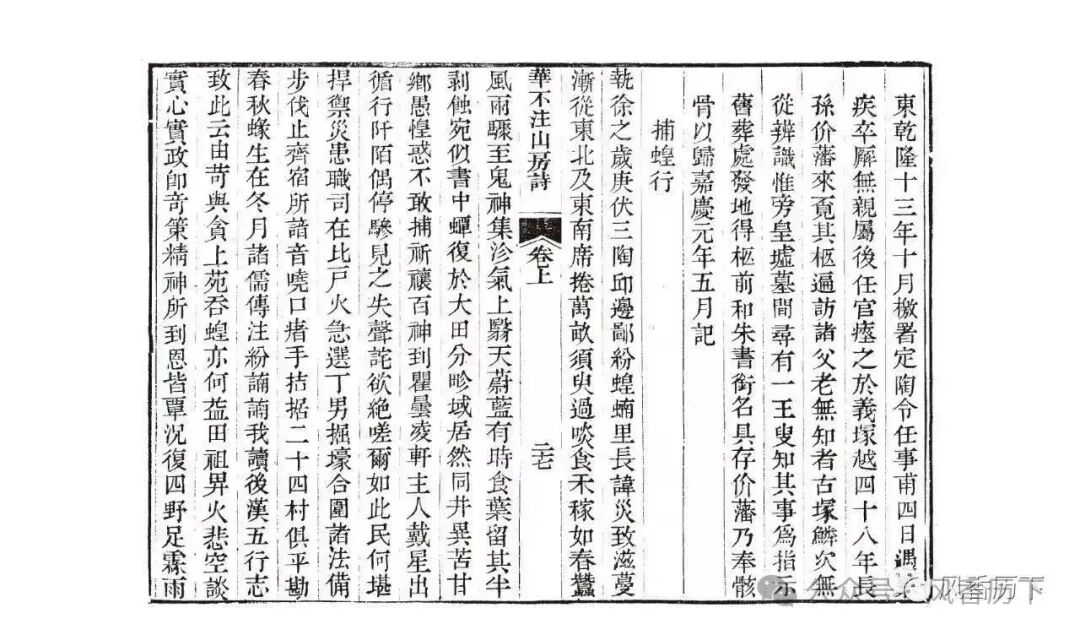 東乾隆十三年十月檄署定陶令任事甫四日遇
疾卒廨無親屬後任官瘞之於義塚越四十八年長
孫价藩來覓其柩遍訪諸父老無知者古塚鱗次無
從辨識惟旁皇墟墓間尋有一王叟知其事爲指示
舊葬處發地得柩前和朱書銜名具存价藩乃奉骸
骨以歸嘉慶元年五月記
捕蝗行
執徐之歲庚伏三陶邱邊鄙紛蝗蝻里長諱災致滋蔓
漸從東北及東南席捲萬畝須臾過啖食禾稼如春蠶
華不注山房詩 卷上 二七
風雨驟至鬼神集沴氣上翳天蔚藍有時食葉留其半
剥蝕宛似書中蟫復於大田分畛域居然同井異苦甘
鄉愚惶惑不敢捕祈禳百神到瞿曇凌軒主人戴星出
循行阡陌偶停驂見之失聲詫欲絶嗟爾如此民何堪
捍禦災患職司在比戸火急選丁男掘壕合圍諸法備
步伐止齊宿所諳音嘵口瘏手拮据二十四村俱平勘
春秋蝝生在冬月諸儒傳注紛諵諵我讀後漢五行志
致此云由苛與貪上苑吞蝗亦何益田祖畀火悲空談
實心實政卽竒策精神所到恩皆覃況復四野足霖雨
公众号 风香历下